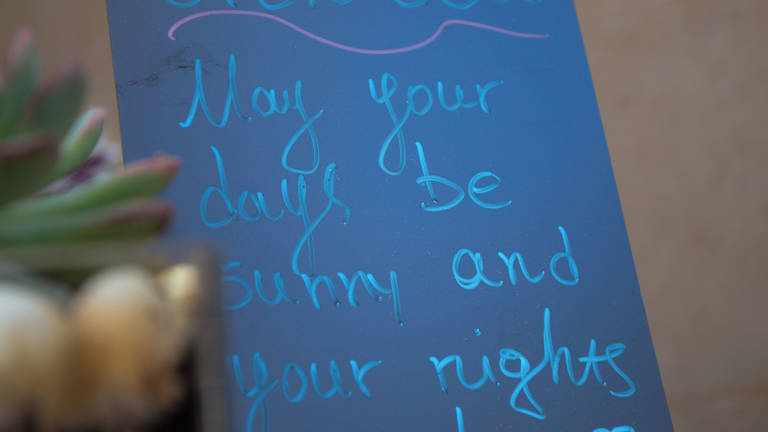 May your
days be
sunny and
your rights